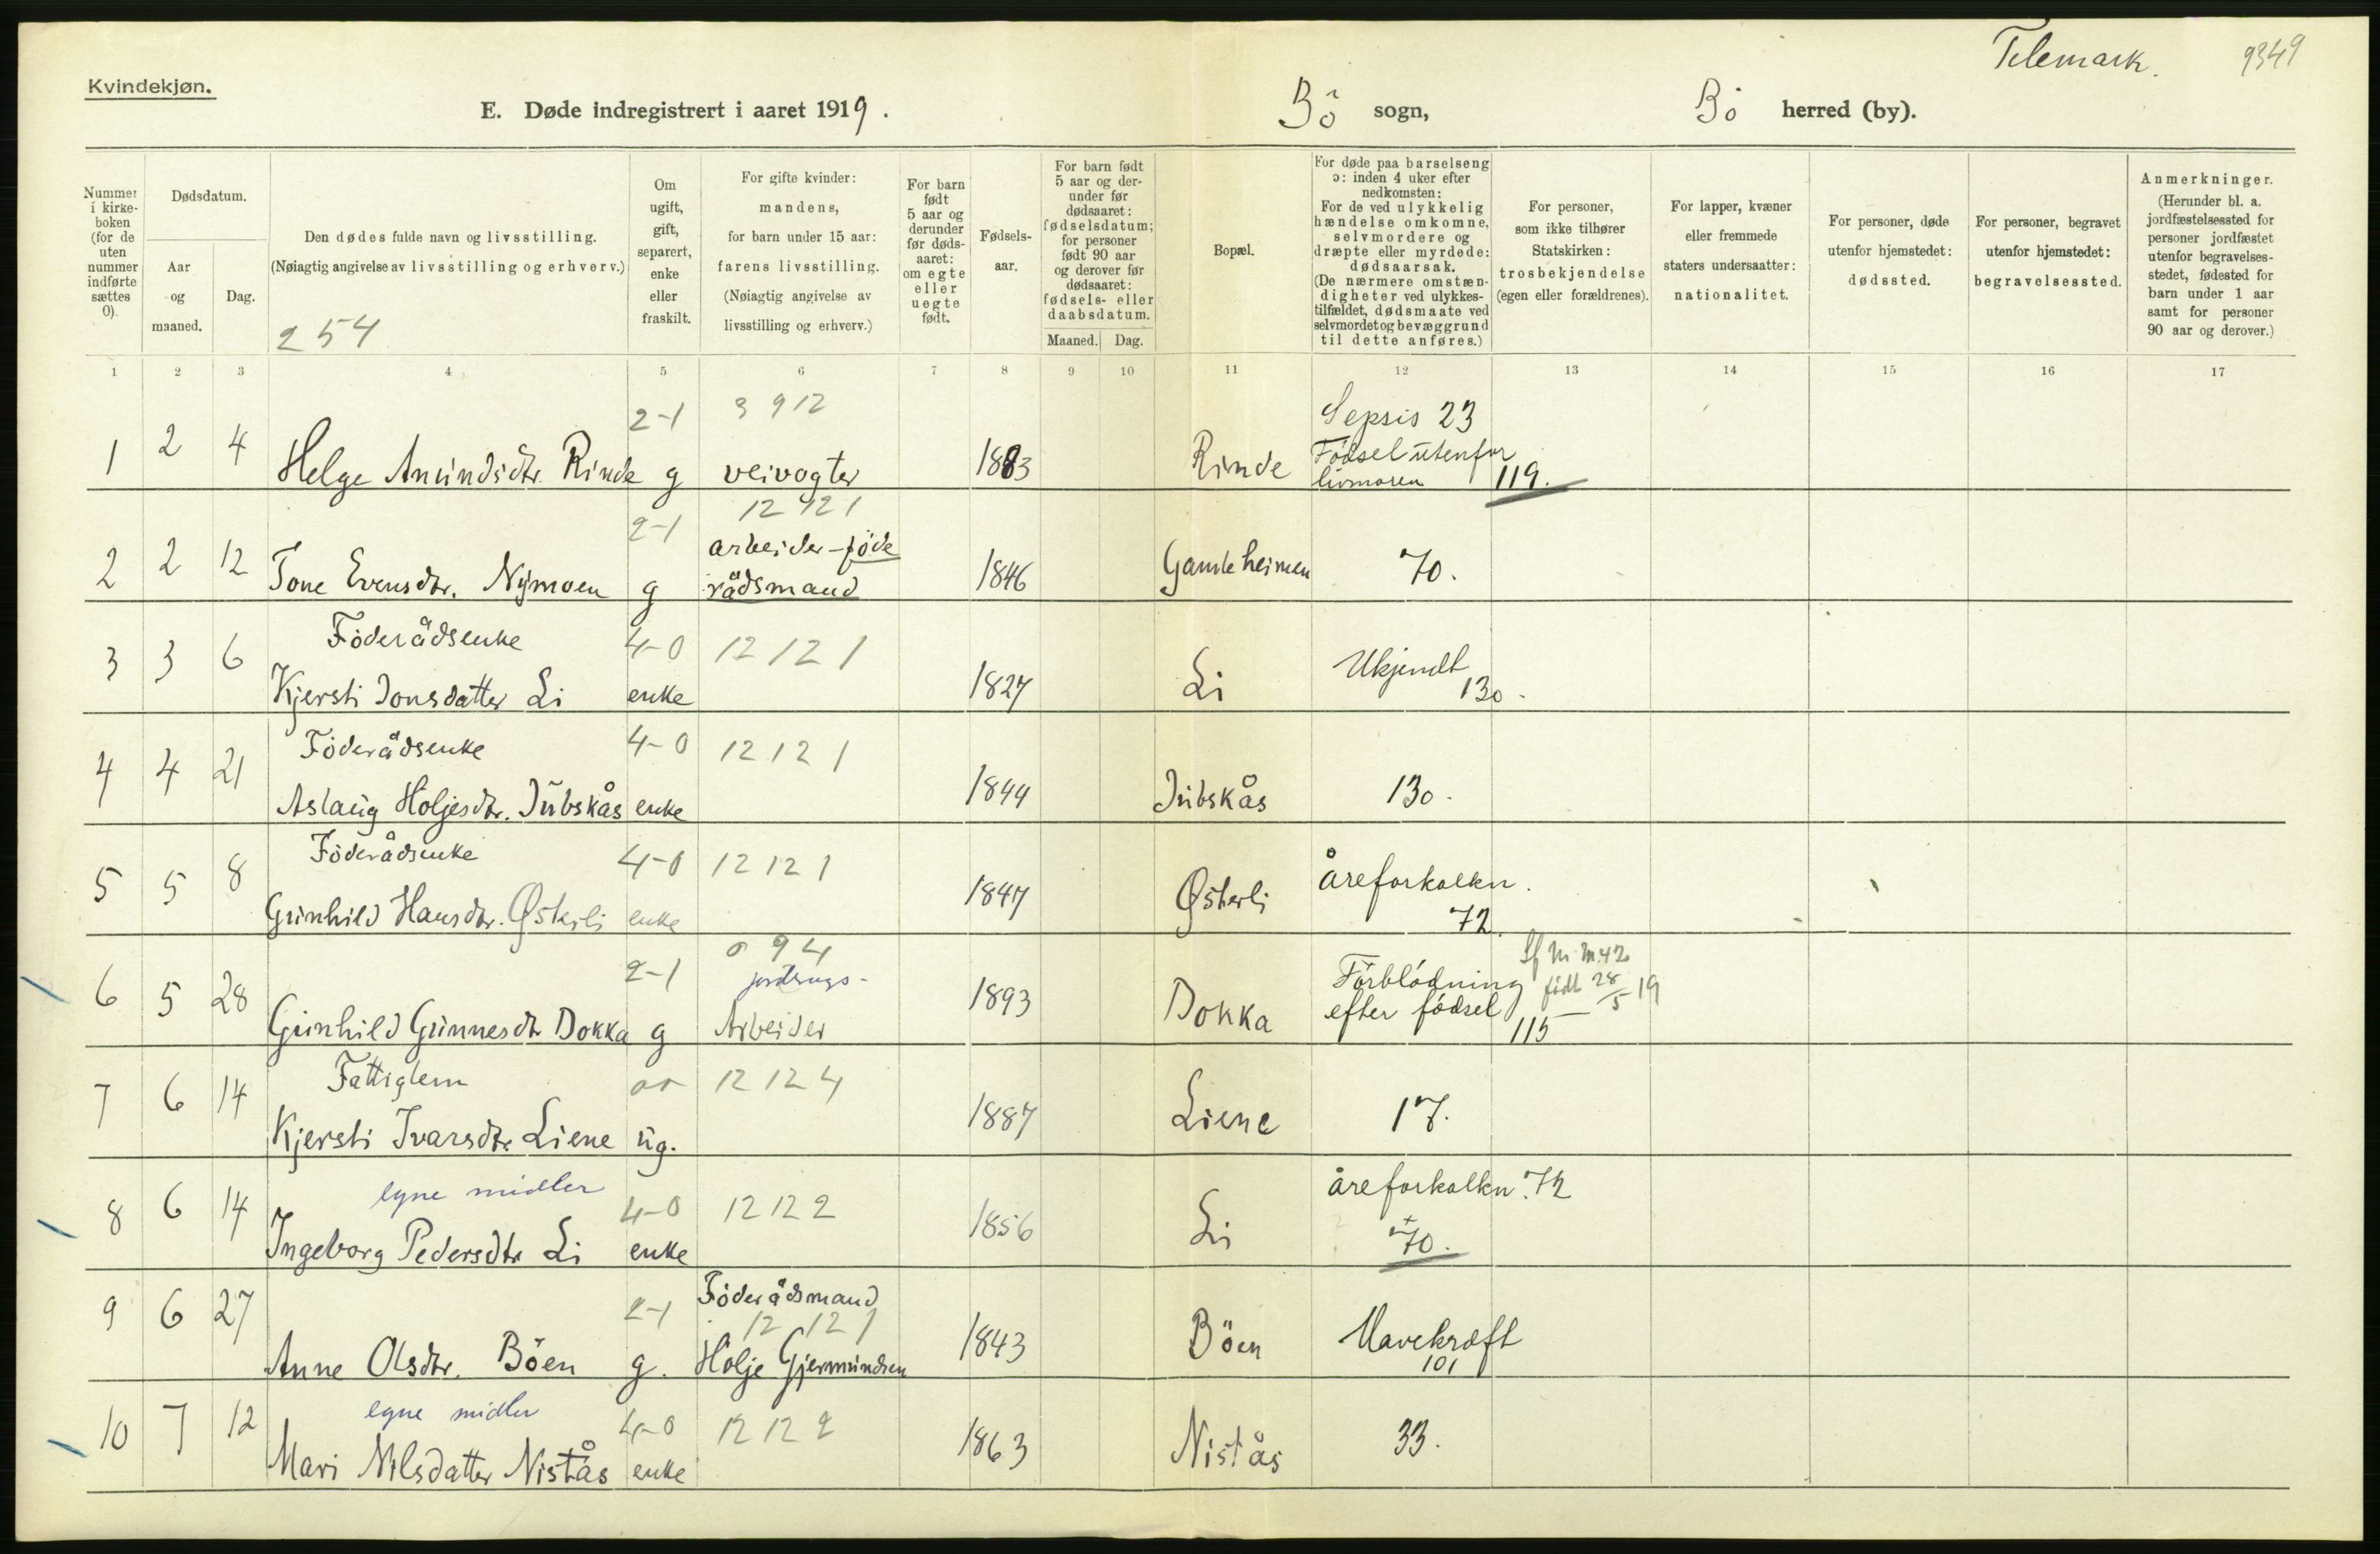 Telemark. 9349
Kvindekjøn.
E. Døde indregistrert i aaret 1919. Bö sogn, Bö herred (by).
Nummer i kirkeboken (for de uten nummer indførte sættes 0).
Dødsdatum.
Aar og maaned.
Dag.
Den dødes fulde navn og livsstilling.
(Nøiagtig angivelse av livsstilling og erhverv.)
254
Om ugift, gift, separert, enke eller fraskilt.
For gifte kvinder: mandens, for barn under 15 aar: farens livsstilling. (Nøiagtig angivelse av livsstilling og erhverv.)
For barn født 5 aar og derunder før dødsaaret: om egte eller uegte født.
Fødselsaar.
For barn født 5 aar og derunder før dødsaaret: fødselsdatum; for personer født 90 aar og derover før dødsaaret: fødsels- eller daabsdatum.
Maaned. Dag.
Bopæl.
For døde paa barselseng ɔ: inden 4 uker efter nedkomsten: For de ved ulykkelig hændelse omkomne, selvmordere og dræpte eller myrdede: dødsaarsak. (De nærmere omstændigheter ved ulykkestilfældet, dødsmaate ved selvmordet og bevæggrund til dette anføres.)
For personer, som ikke tilhører Statskirken: trosbekjendelse (egen eller forældrenes).
For lapper, kvæner eller fremmede staters undersaatter: nationalitet.
For personer, døde utenfor hjemstedet: dødssted.
For personer, begravet utenfor hjemstedet: begravelsessted.
Anmerkninger. (Herunder bl. a. jordfæstelsessted for personer jordfæstet utenfor begravelsesstedet, fødested for barn under 1 aar samt for personer 90 aar og derover.)
1 2 3 4 5 6 7 8 9 10 11 12 13 14 15 16 17
2-1 3 9 12 Sepsis 23
1 2 4 Helge Anundsdtr. Rinde g veivogter 1883 Rinde Födsel utenfor
livmoren 119.
2-1 12 12 1
arbeider-föde
2 2 12 Tone Evensdtr. Nymoen g rådsmand 1846 Gamleheimen 70.
Föderådsenke 4-0 12 12 1
3 3 6 Kjersti Jonsdatter Li enke 1827 Li Ukjendt
130.
Föderådsenke 4-0 12 12 1
4 4 21 Aslaug Holjesdtr. Jubskås enke 1844 Jubskås 130.
Föderådsenke 4-0 12 12 1
5 5 8 Gunhild Hansdtr. Østerli enke 1847 Østerli åreforkalkn.
72.
2-1 0 9 4
jordbrugs-
6 5 28 Gunhild Gunnesdtr Dokka g Arbeider 1893 Dokka Forblödning
efter födsel
115
födt 28/5 19
Fattiglem 12 12 4
7 6 14 Kjersti Ivarsdtr. Liene ug. 1887 Liene 17.
egne midler 4-0 12 12 2
8 6 14 Ingeborg Pedersdtr Li enke 1856 Li åreforkalkn. 72
70.
2-1 Föderådsmand
12 12 1
9 6 27 Anne Olsdtr. Böen g. Holje Gjermundsen 1843 Böen Mavekræft
101
egne midler 4-0 12 12 2
10 7 12 Mari Nilsdatter Nistås enke 1863 Nistås 33.